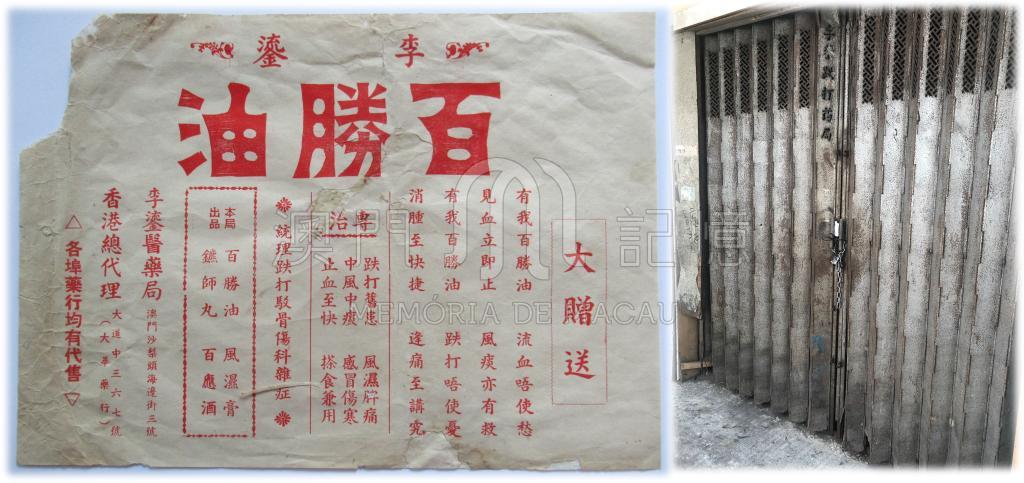 李鎏
百勝油
大贈送
有我百勝油 流血唔使愁
見血立即止 風痰亦有救
有我百勝油 跌打唔使憂
消腫至快捷 逢痛至講究
專治
跌打舊患 風濕脾痛
中風中痰 感冒傷寒
止血至快 搽食兼用
統理跌打駁骨傷科雜症
本局出品
百勝油 風濕膏
鑣師丸 百應酒
李鎏醫藥局 澳門沙梨頭海邊街三號
香港總代理 大道中三六七號
(大華藥行)
△各埠藥行均有代售▽
澳門記憶
MEMÓRIA DE MACAU
李鎏跌打葯局